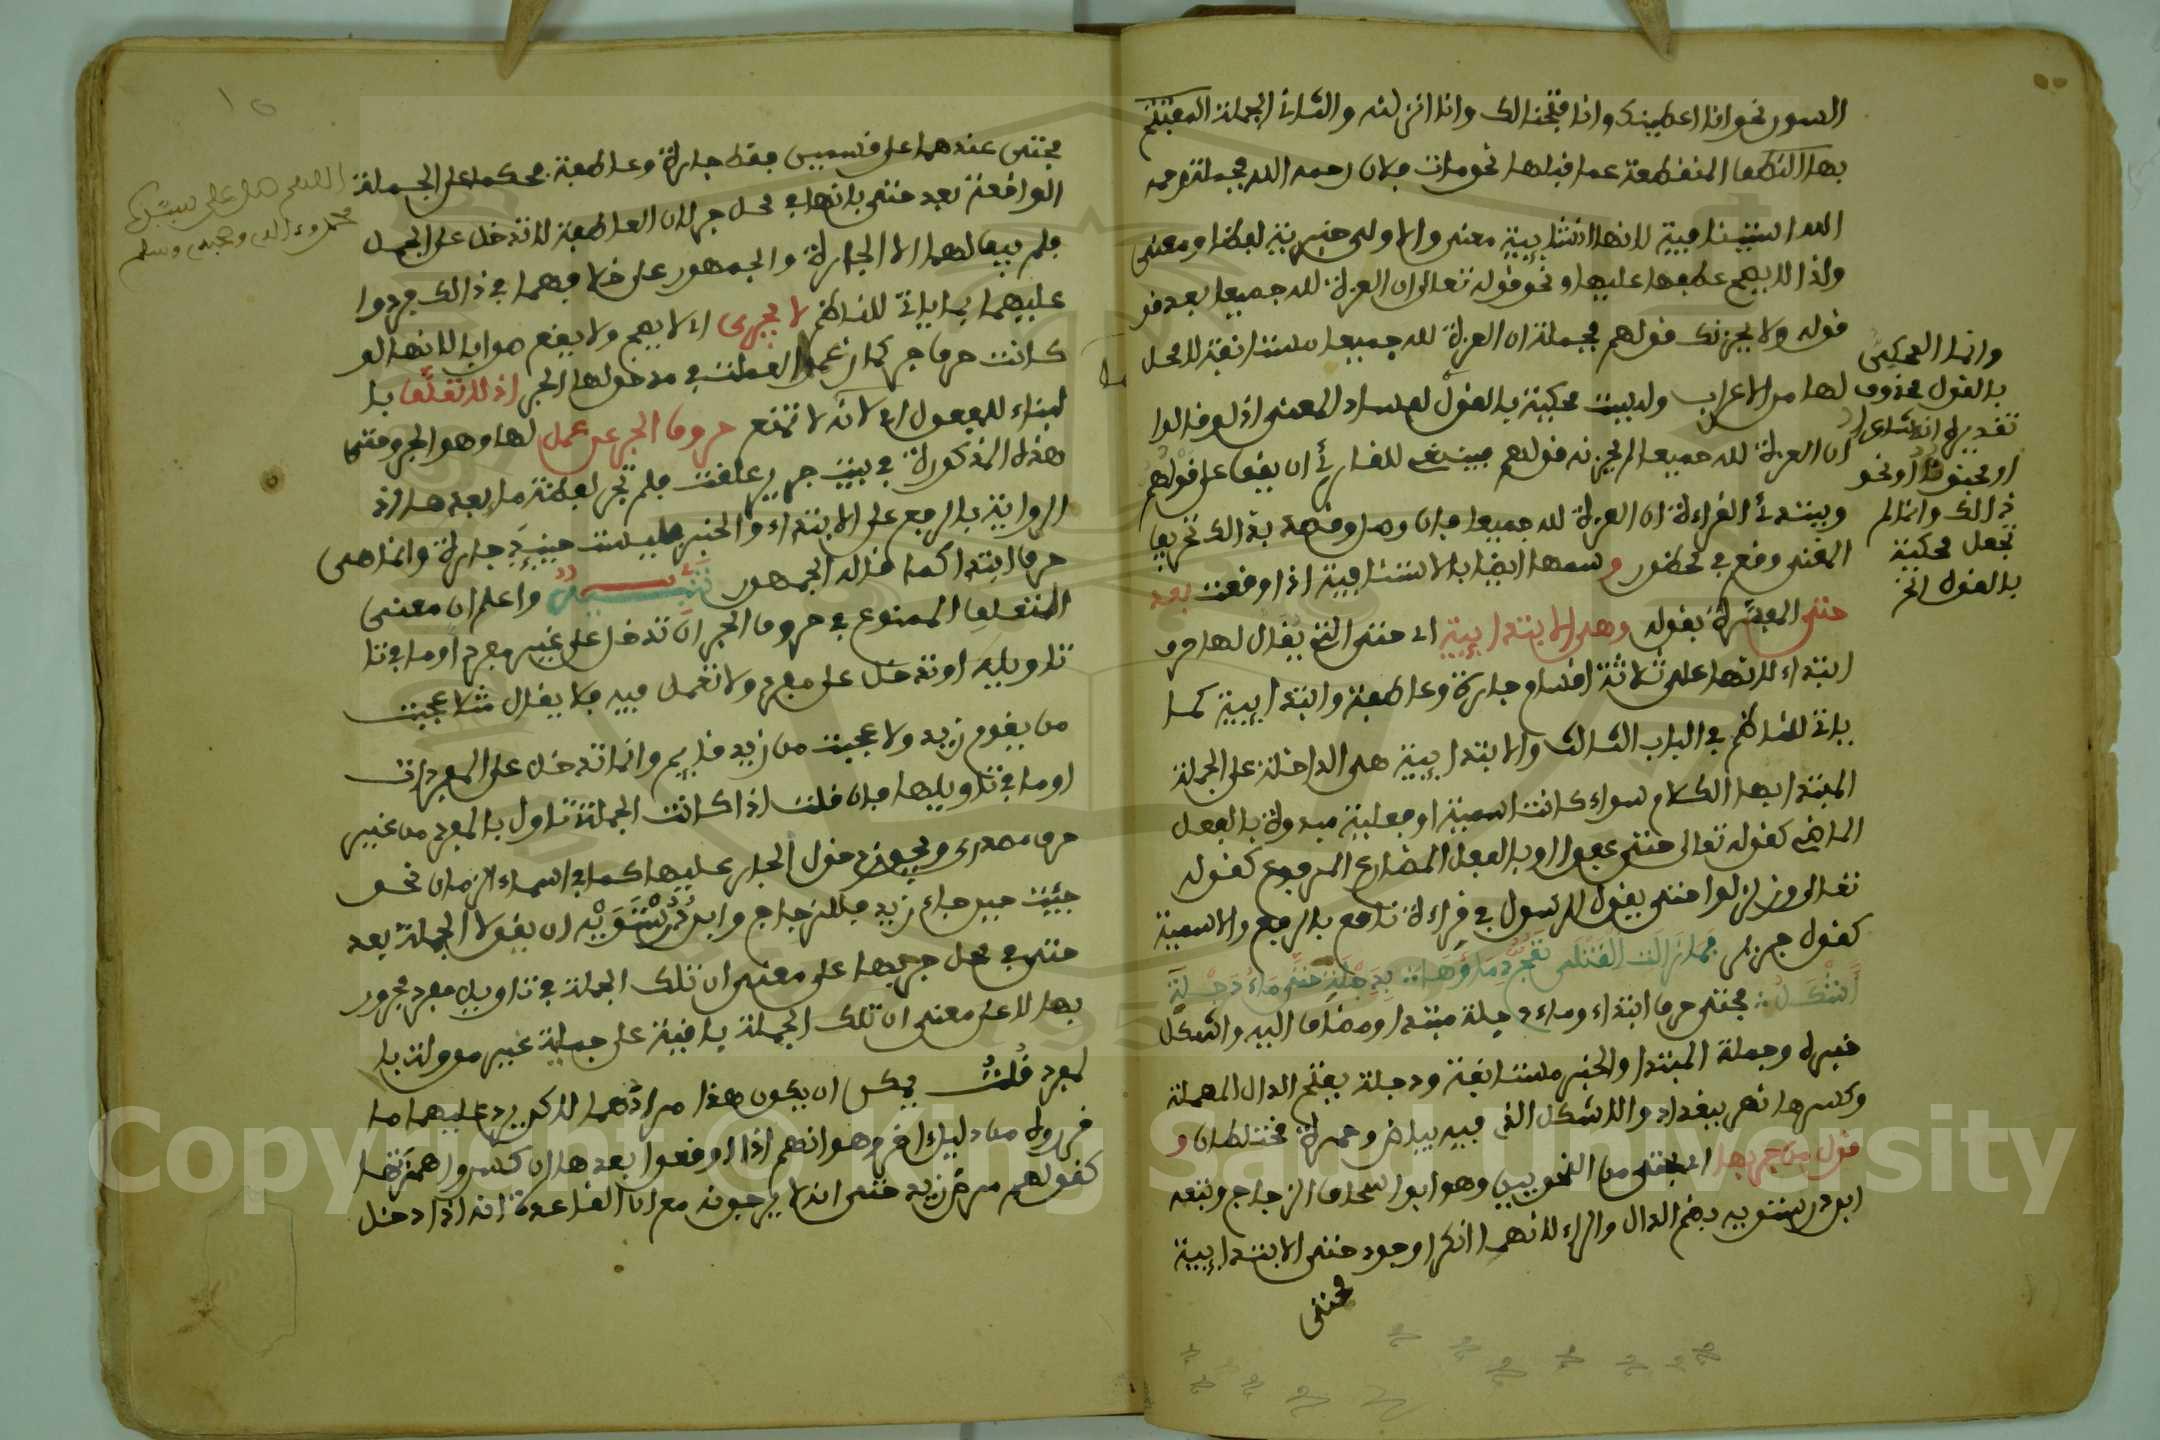 السور نحو انا اعطينك وانا فتحنا لك وانا انزلنه والثاني الجملة المفتتح
بها النطق المنقطعة عما قبلها نحو مات فلان رحمه الله فجملة رحمه
الله استينافية لانها انشايية معنى والاولى خبرية لفظا ومعنى
ولذا لا يصح عطفها عليها ونحو قوله تعالى ان العزة لله جميعا بعد قو
قوله ولا يحزنك قولهم فجملة ان العزة لله جميعا مستانفة لا محل
لها من الاعراب وليست محكية بالقول لفساد المعنى اذ لو قالوا
ان العزة لله جميعا لم يحزنه قولهم فينبغي للقارئ ان يقف على قولهم
ويبتدئ القراءة ان العزة لله جميعا فان وصل وقصد بذالك تحريف
المعنى وقع في محظور وسمها ايضا بالاستينافية اذا وقعت بعد
حتى المفسرة بقوله وهي الابتدايية اي حتى التي يقال لها حرف
ابتداء لانها على ثلاثة اقسام جارة وعاطفة وابتدايية كما
ياتي للناظم في الباب الثالث والابتدايية هي الداخلة على الجملة
المبتدا بها الكلام سواء كانت اسمية او فعلية مبدوة بالفعل
الماضي كقوله تعالى حتى عفوا او بالفعل المضارع المرفوع كقوله
تعالى وزلزلوا حتى يقول الرسول في قراءة نافع بالرفع والاسمية
كقول جرير فما زالت القتلى تمج دماءها بدجلة حتى ماء دجلة
أشكل فحتى حرف ابتداء وماء دجلة مبتدا ومضاف اليه واشكل
خبره وجملة المبتدا والخبر مستانفة ودجلة بفتح الدال المهملة
وكسرها نهر ببغداد والاشكل الذي فيه بياض وحمرة مختلطان و
قول من جر بها اي بحتى من النحويين وهو ابو اسحاق الزجاج وتبعه
ابن درستويه بضم الدال والراء لانهما انكرا وجود حتى الابتدايية
فحتى
وانما المحكي
بالقول محذوف
تقديره
او مجنون او نحو
ذالك وانما لم
تجعل محكية
بالقول الخ
فحتى عندهما على قسمين فقط جارة وعاطفة فحكما على الجملة
الواقعة بعد حتى بانها في محل جر لان العاطفة لا تدخل على الجمل
فلم يبق لهما الا الجارة والجمهور على خلافهما في ذالك فردوا
عليهما بما ياتي للناظم لا يجرى اي لا يصح ولا يقع صوابا لانها لو
كانت حرف جر كما زعموا لعملت في مدخولها الجر اذ لا تعلق با
لبناء للمفعول اي لانه لا تمنع حروف الجر عن عمل لها وهو الجر وحتى
هذه المذكورة في بيت جرير علقت فلم تجر لفظة ما بعدها اذ
الرواية بالرفع على الابتداء والخبر فليست حينيذ جارة وانما هي
حرف ابتدا كما قاله الجمهور تنبيه واعلم ان معنى
التعليق الممنوع في حروف الجر ان تدخل على غير مفرد او ما في تا
تاويله او تدخل على مفرد ولا تعمل فيه فلا يقال مثلا عجبت
من يقوم زيد ولا عجبت من زيد قايم وانما تدخل على المفردات
او ما في تاويلها فان قلت اذا كانت الجملة تاول بالمفرد من غير
حرف مصدري ويجوز دخول الجار عليها كما في اسماء الزمان نحو
جئت حين جاء زيد فللزجاج وابن درستويه ان يقولا الجملة بعد
حتى في محل جر بها على معنى ان تلك الجملة في تاويل مفرد مجرور
بها لا على معنى ان تلك الجملة باقية على جملة غير موولة با
لمفرد قلت يمكن ان يكون هذا مرادهما لاكن يرد عليهما ما
قرروه من دليل اخر وهو انهم اذا اوقعوا بعدها ان كسروا همزتها
كقولهم مرض زيد حتى انه لا يرجونه مع ان القاعدة انه اذا دخل
اللهم صل على سيدنا
محمد وءاله وصحبه وسلم
Copyright © King Saud University